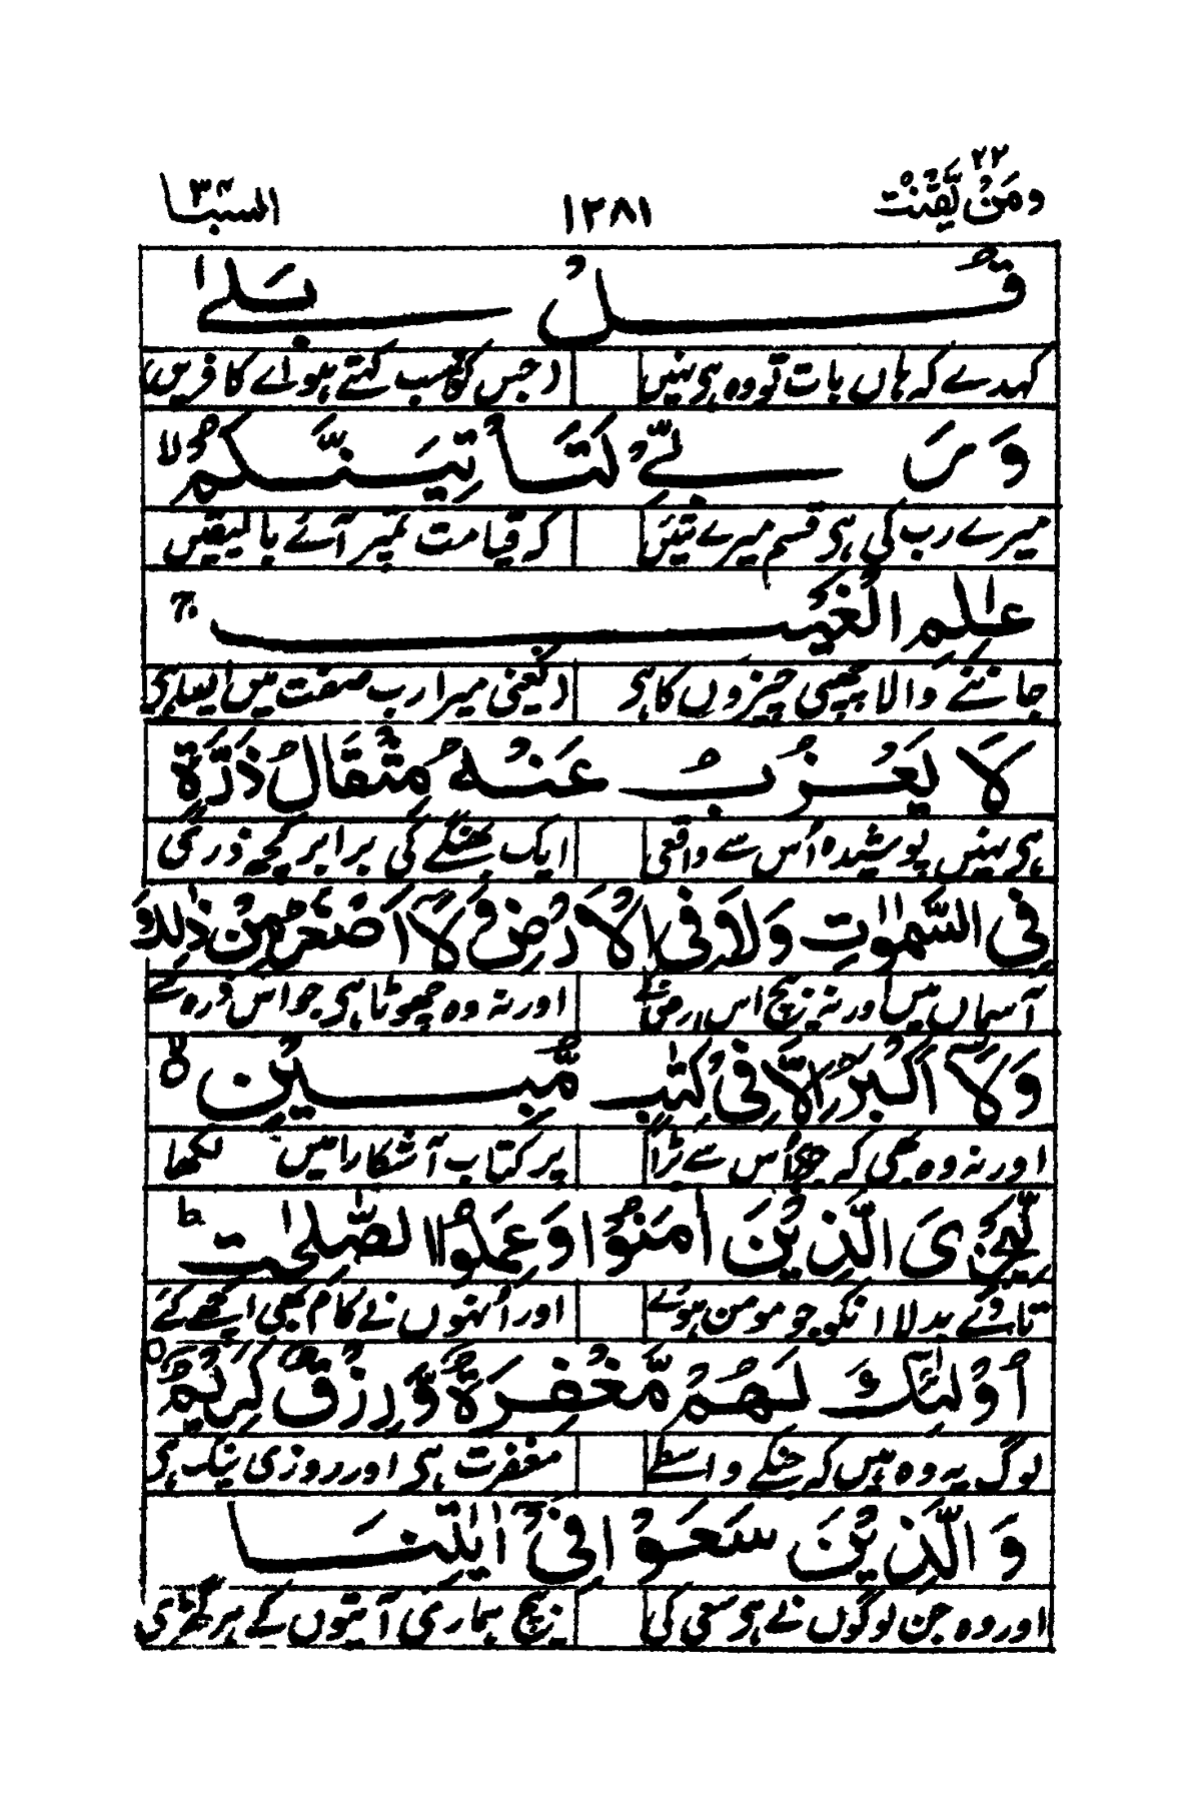 ومن یقنت ۲۲ ۱۳۸۱ السبا ۳۴
قُلْ بَلٰی
کہدے کہ ہاں بات تو وہ ہی نہیں (جس کو سب کہتے ہو اے کافرین)
وَ رَبِّیْ لَتَاْتِیَنَّکُمْ ۙ
میرے رب کی ہی قسم میرے تئیں کہ قیامت تمپر آئے بالیقیں
عٰلِمِ الْغَیْبِ ۚ
جاننے والا چھپی چیزوں کا ہی (یعنی میرا رب صفت میں ایسا ہی
لَا یَعْزُبُ عَنْهُ مِثْقَالُ ذَرَّةٍ
ہی نہیں پوشیدہ اُس سے واقعی ایک بھنگے کی برابر کچھ ذری
فِی السَّمٰوٰتِ وَلَا فِی الْاَرْضِ وَلَآ اَصْغَرُ مِنْ ذٰلِكَ
آسماں میں اور نہ بیچ اس ارض کے اور نہ وہ چھوٹا ہی جو اس ذرہ سے
وَلَآ اَكْبَرُ اِلَّا فِیْ كِتٰبٍ مُّبِیْنٍ ۙ
اور نہ وہ بھی کہ جو ہی اُس سے بڑا پر کتاب آشکارا میں لکھا
لِّیَجْزِیَ الَّذِیْنَ اٰمَنُوْا وَعَمِلُوا الصّٰلِحٰتِ ؕ
تا کہ دے بدلا انکو جو مومن ہوئے اور اُنہوں نے کام بھی اچھے کئے
اُولٰٓئِكَ لَهُمْ مَّغْفِرَةٌ وَّرِزْقٌ كَرِیْمٌ ○
لوگ یہ وہ ہیں کہ جنکے واسطے مغفرت ہی اور روزی نیک ہی
وَالَّذِیْنَ سَعَوْا فِیْٓ اٰیٰتِنَا
اور وہ جن لوگوں نے ہی سعی کی بیچ ہماری آیتوں کے ہر گھڑی